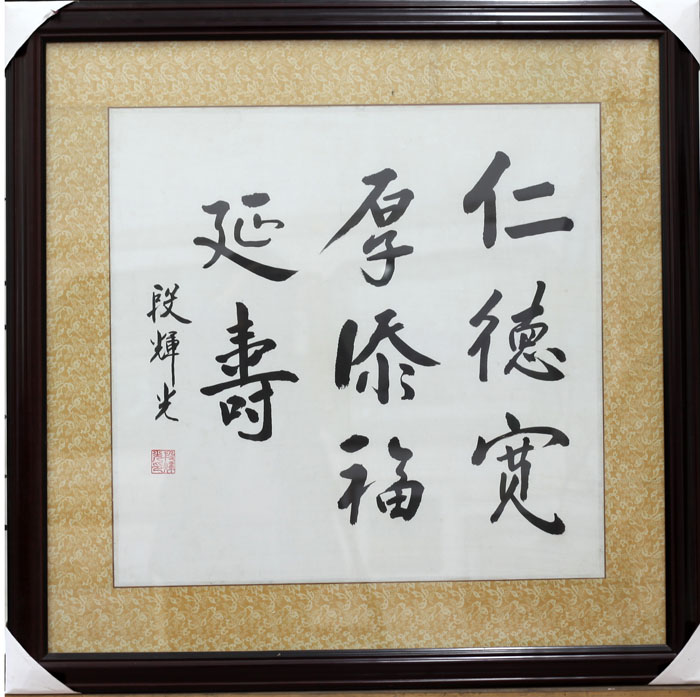 仁德宽
厚添福
延壽
段輝光